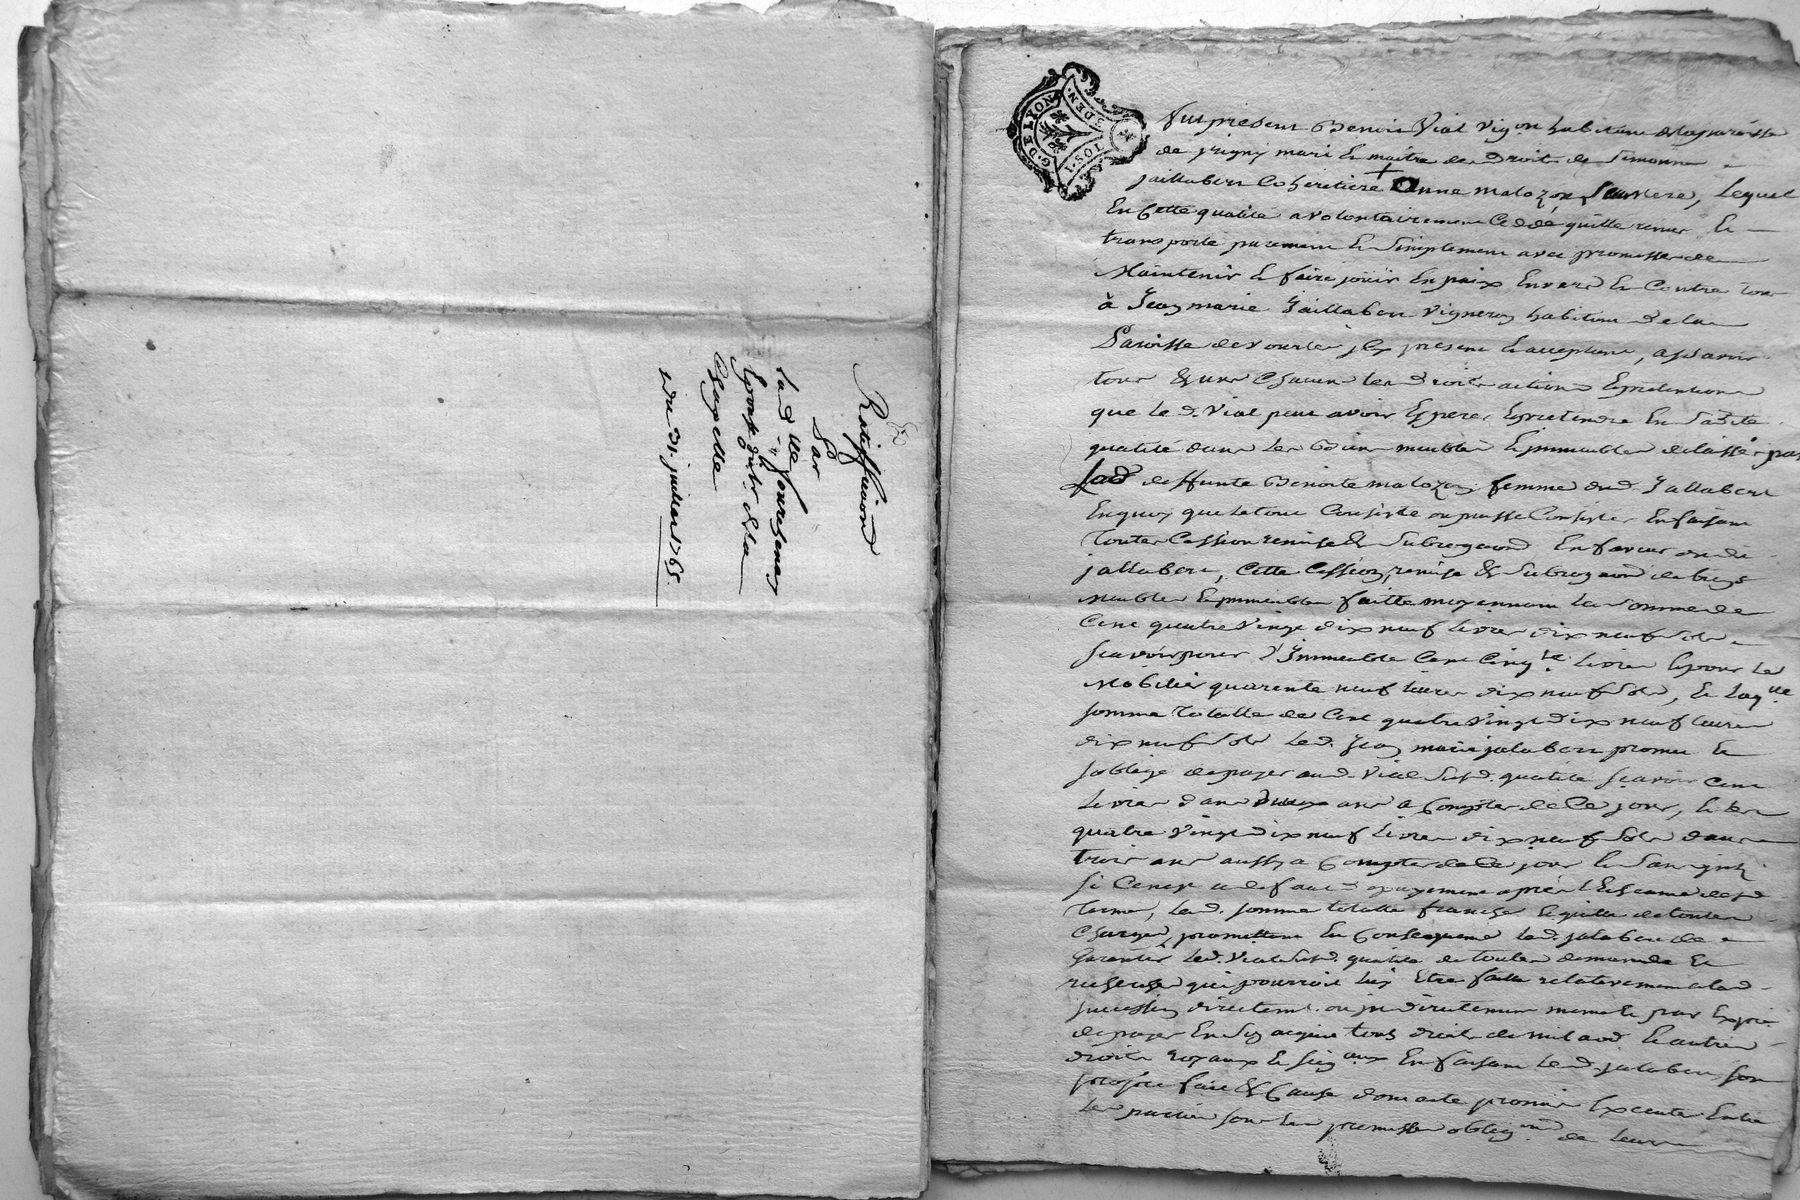 Rattiffication
Par
lad ve fourchenay
Epouse du sr de la
Chapelle
Du 31 juillet 1765
G. DE LYON
2 SOLS. DEN.
fut present Benoit Vial vigon habitant de la paroisse
de jrigny mari Et maitre des Droits de Simonne
jaillabert Coheritiere Anne malozon sa mere, Lequel
En Cette qualité a volontairement Ceddé quitte remis Et
transporté purement Et Simplement avec promesse de
Maintenir Et faire joüir En paix Envers Et Contre tous
à Jean marie Jaillabert Vigneron habitant de la
Paroisse de Vourles jcy present Et acceptant, assavoir
tous & uns Chacuns les Droits actions Et pretentions
que led. Vial peut avoir Esperer Et pretendre En Sadite
qualité dans les Biens meubles Et immeubles delaissés par
lad deffunte Benoite malozon femme dud. Jallabert
En quoy que le tout Consiste ou puisse Consister En faisant
toutes Cession remise & Subrogation En faveur dud.
jallabert, Cette Cession, remise & Subrogation de biens
Meubles Et immeubles faitte moyennant La Somme de
Cent quatre Vingt dix neuf Livres dix neuf Sols
scavoir pour l'Immeuble Cent Cinqte Livres Et pour Le
Mobilier quarente neuf livres dix neuf Sols, Et laqlle
somme totalle de Cent quatre Vingt dix neuf livres
dix neuf Sols Led. Jean marie jalabert promet Et
soblige de payer aud. Vial Susd. qualité scavoir Cent
Livres dans deux ans a Compter de Ce jour, Et les
quatre Vingt dix neuf Livres dix neuf Sols dans
trois ans aussy a Compter de Ce jour Et Sans jnts
si Ce nest a deffaut de payement après l'Echeance desd
termes, lad. somme totalle franche Et quitte de toutes
Charges, promettant En Consequence Led. jalabert de
garentir Led. Vial Susd. qualité de toutes demandes Et
recherches qui pourroit luy Etre faitte relativement a lad
succession directemt. ou jndirectement meme Et par Exprès
de payer En Son acquit tous droits de milaod Et autres
droits royaux Et Seigaux En faisant Led. jalabert son
propre fait & Cause dont acte promis Executer Entre
les parties sous les promesses obligons de leurs